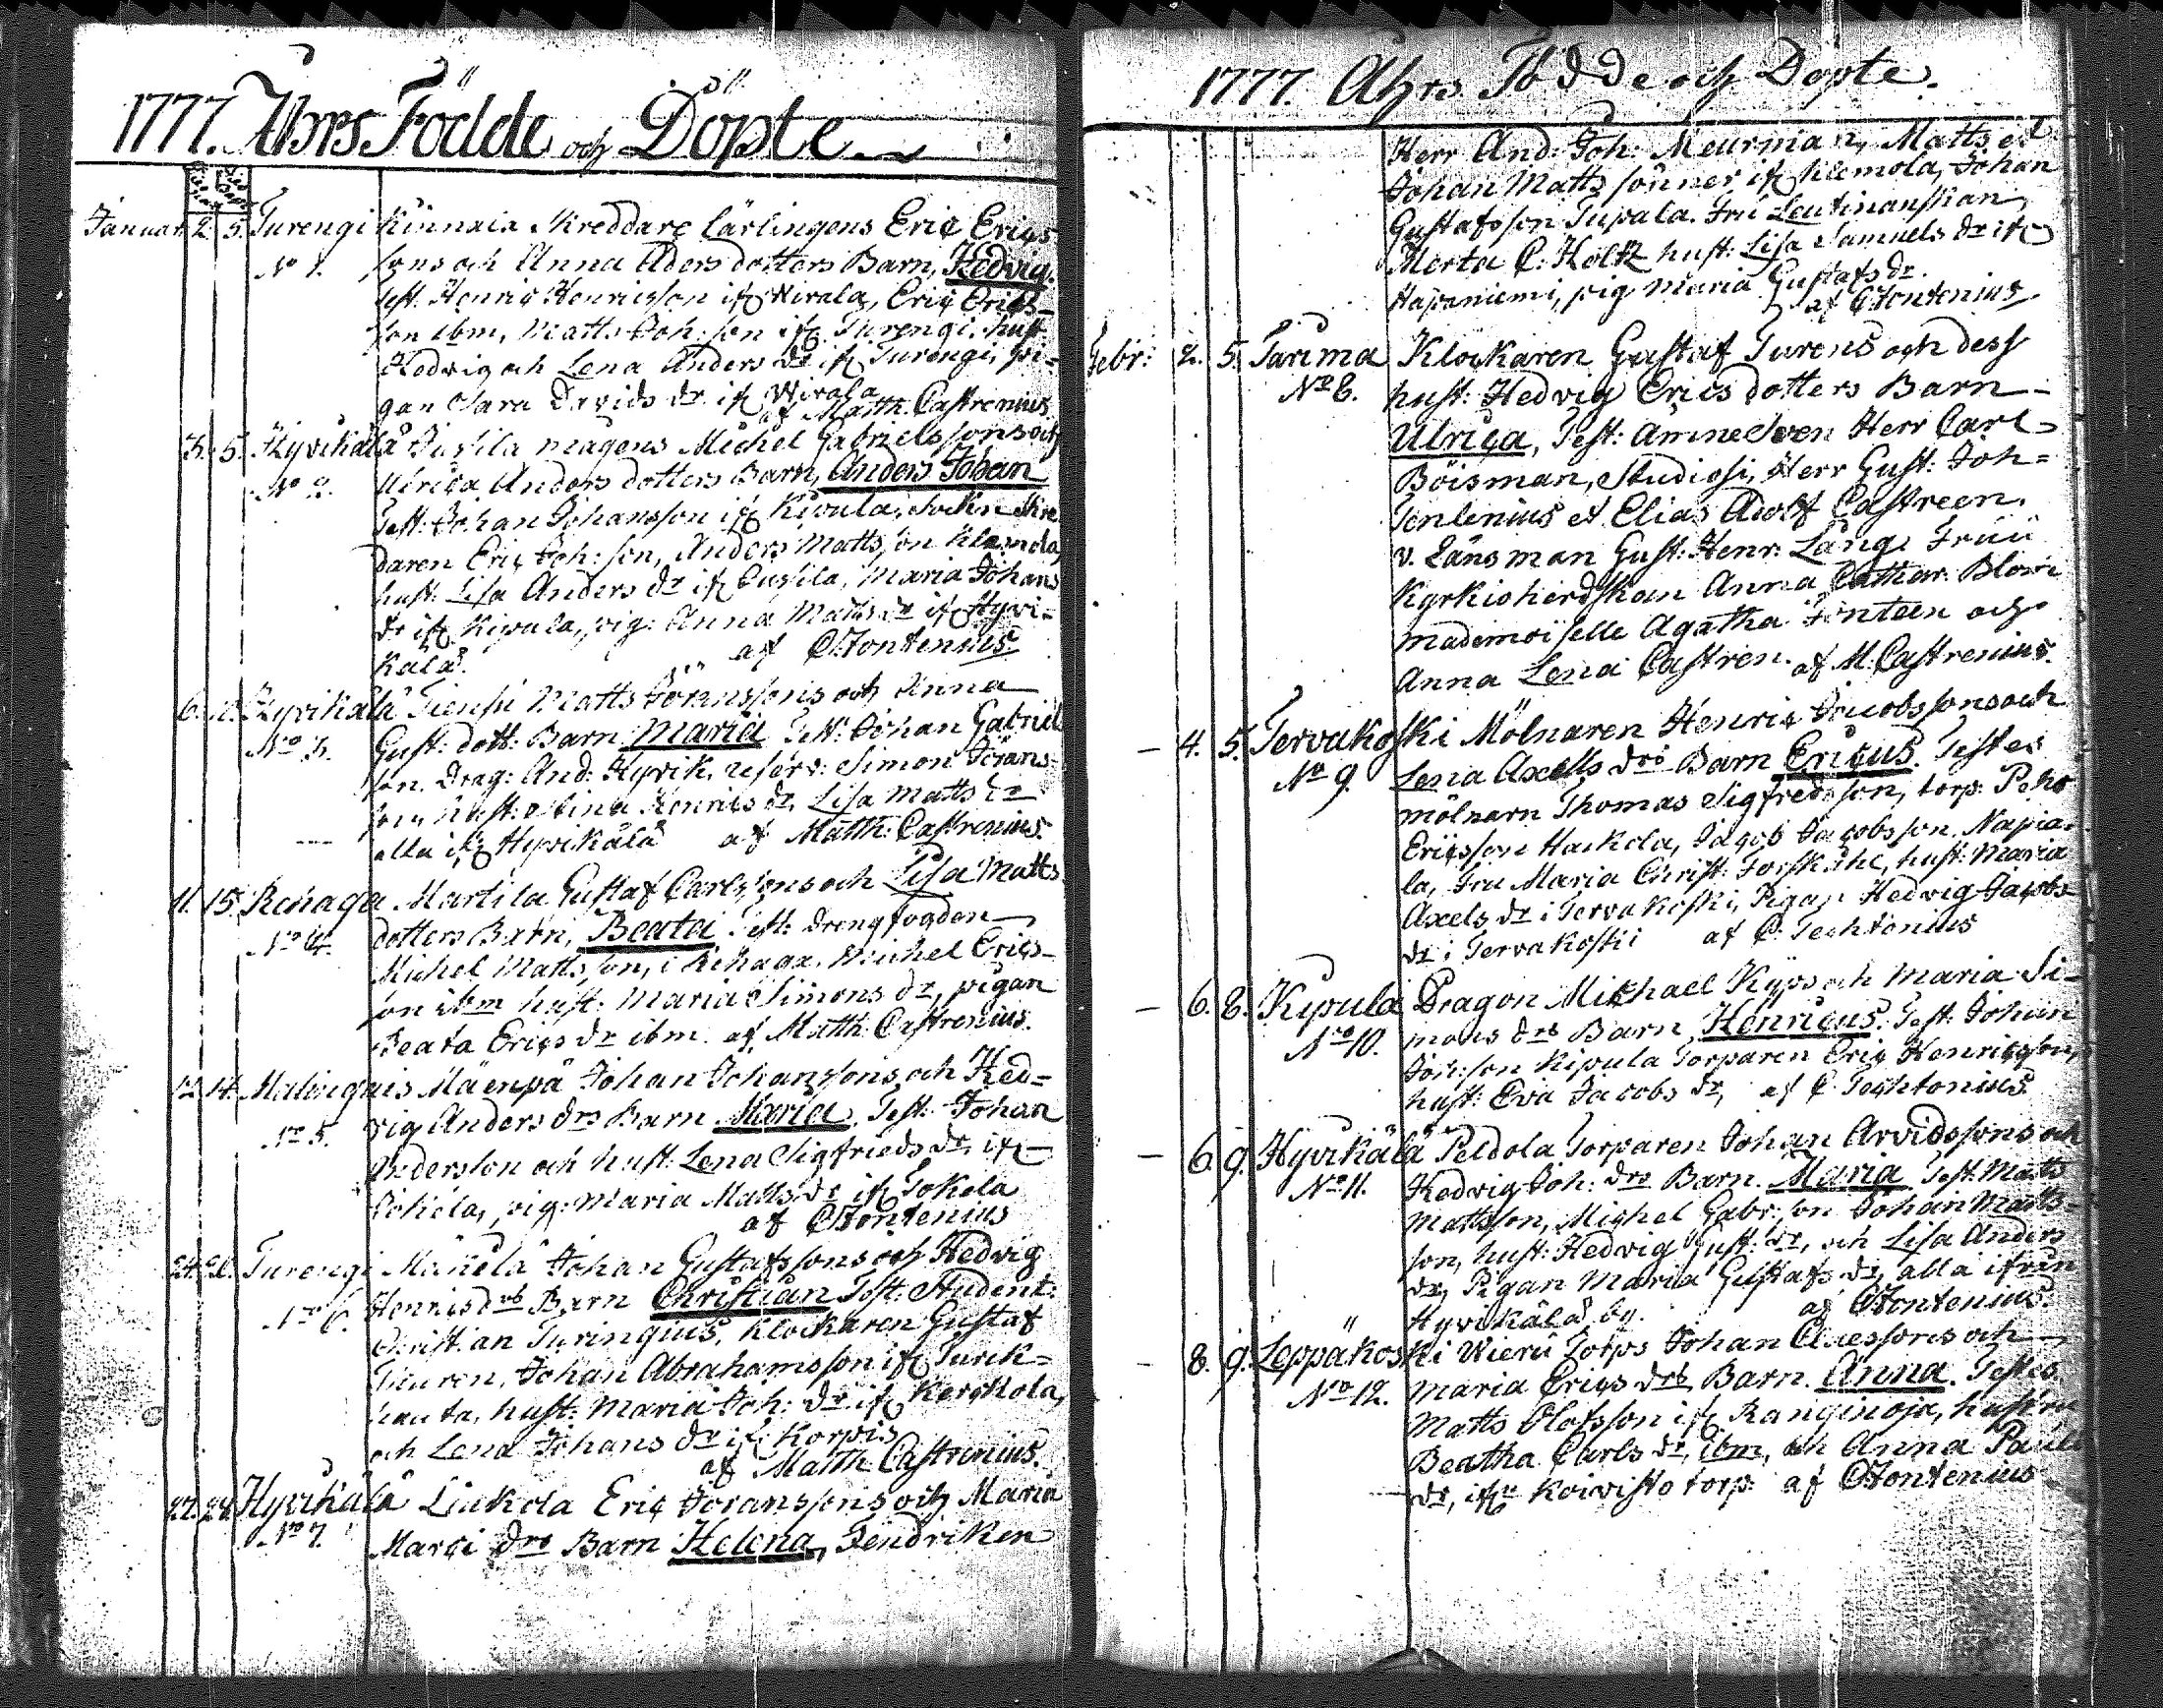 1777. Åhrs Födde och Döpte
Januar. 2. 5. Turengi Kinnaia Skreddare lärlingens Eric Erics
No 1. sons och Anna Aders dotters Barn, Hedvig.
Test. Henric Henricsson ifr. Wirala, Eric Erics-
son ibm, Matts Joh:son ifr. Turengi, hust.
Hedvig och Lena Anders dr ifr Turengi, pi-
gan Sara Davids dr. ifr Wirala
af Matth. Castrenius
3. 5. Hyvikälä Jussila mågens Michel Gabrielssons och
No 2. Ulrica Anders dotters Barn, Anders Johan
Test: Johan Johansson ifr Kipula, Sockn Skre
daren Eric Joh:son, Anders Matts son Klemola,
hust. Lisa Anders dr ifr Jussila, Maria Johans
dr ifr Kipula, pig: Anna Matts dr ifr Hyvi-
kälä. af C. Fontenius.
6. Hyvikälä Matts Jöranssons och Anna
No 3. Gust: dott: Barn Maria Test: Johan Gabriels
son. Drag: And: Hyvik, reserv: Simon Jörans-
son, hust: Stina Henrics dr, Lisa Matts dr
alla ifr Hyvikälä af Matth: Castrenius.
11. 15. Rehaga Martila Gustaf Carlssons och Lisa Matts
No 4. dotters Barn, Beata Test: drengfogden
Michel Matts son, i Rehaga. Michel Erics-
son ibm hust. Maria Simons dr, pigan
Beata Erics dr ibm. af Matth: Castrenius.
12. 14. Malinguis Mäenpä Johan Johanssons och Hed-
No 5. vig Anders drs Barn Maria. Test: Johan
Andersson och hust: Lena Sigfrieds dr, ifr
pig: Maria Matts dr ifr Tokela
af C. Fontenius
24. 26. Turengi Mäkelä Johan Gustafssons och Hedvig
No 6. Henrics drs Barn Christian Test: Student:
Christian Turingius, Klockaren Gustaf
Tueren, Johan Abrahamsson ifr Turek-
hauta, hust: Maria Joh: dr ifr Kerckola,
och Lena Johans dr ifr Korpis
af Matth: Castrenius.
27. 28. Hyvikälä Liukola Eric Joranssons och Maria
No 7. Marci drs Barn Helena, Fendriken
1777. Åhrs Födde och Döpte.
Herr And: Joh: Meurman, Matts et
Johan Matts sönner ifr Klemola, Johan
Gustafsson Tupala. Fru Leutinanskan
Merta C: Holtz hust: Lisa Samuels dr ifr
Hapaniemi, pig Maria Gustafs dr.
af C Fontenius
Febr: 2. 5. Tarima Klockaren Gustaf Turens och dess
No 8. hust: Hedvig Erics dotters Barn
Ulrica, Test: Herr Carl
Böisman, Studiosi, Herr Gust: Joh=
Tenlenius et Elias Adolf Castreen.
v. Länsman Gust: Henr: Lång. Fruu
Kyrkioherdskan Anna Cathar: Blom
mademoiselle Agatha Fonteen och
Anna Lena Castren. af M. Castrenius.
– 4. 5. Tervakoski Mölnaren Henric Jacobssons och
No 9. Lena Axells drs Barn Ericus. Testes
mölnarn Thomas Sigfredsson, torp: Peho
Ericsson Hackola, Jacob Jacobsson Napia-
la, Fru Maria Christ: Forskåhl, hust: Maria
Axels dr i Tervakoski, Pigan Hedvig Jacobs
dr i Tervakoski af C: Techtonius
– 6. 8. Kipula Dragon Mikhael Kyps och Maria Si-
No 10. mons drs Barn, Henricus. Test: Johan
Joh:son Kipula Torparen Eric Henricsson,
hust: Eva Jacobs dr, af C Techtonius
– 6. 9. Hyvikälä Peldola Torparen Johan Arvidssons och
No 11. Hedvig Joh: drs Barn. Maria Test: Matts
Mattsson, Michel Gabr:son Johan Matts-
son, hust: Hedvig Gust: dr, och Lisa Anders
dr, Pigan Maria Gustafs dr, alla ifrån
Hyvikälä by. af C Fontenius.
– 8. 9. Leppäkoski Wieru Torps Johan Claessons och
No 12. Maria Erics drs Barn. Anna. Testes
Matts Olofsson ifr Ranginoja, hustru
Beatha Carls dr, ibm, och Anna Pauls
dr, ifr Koivisto torp: af C Fontenius